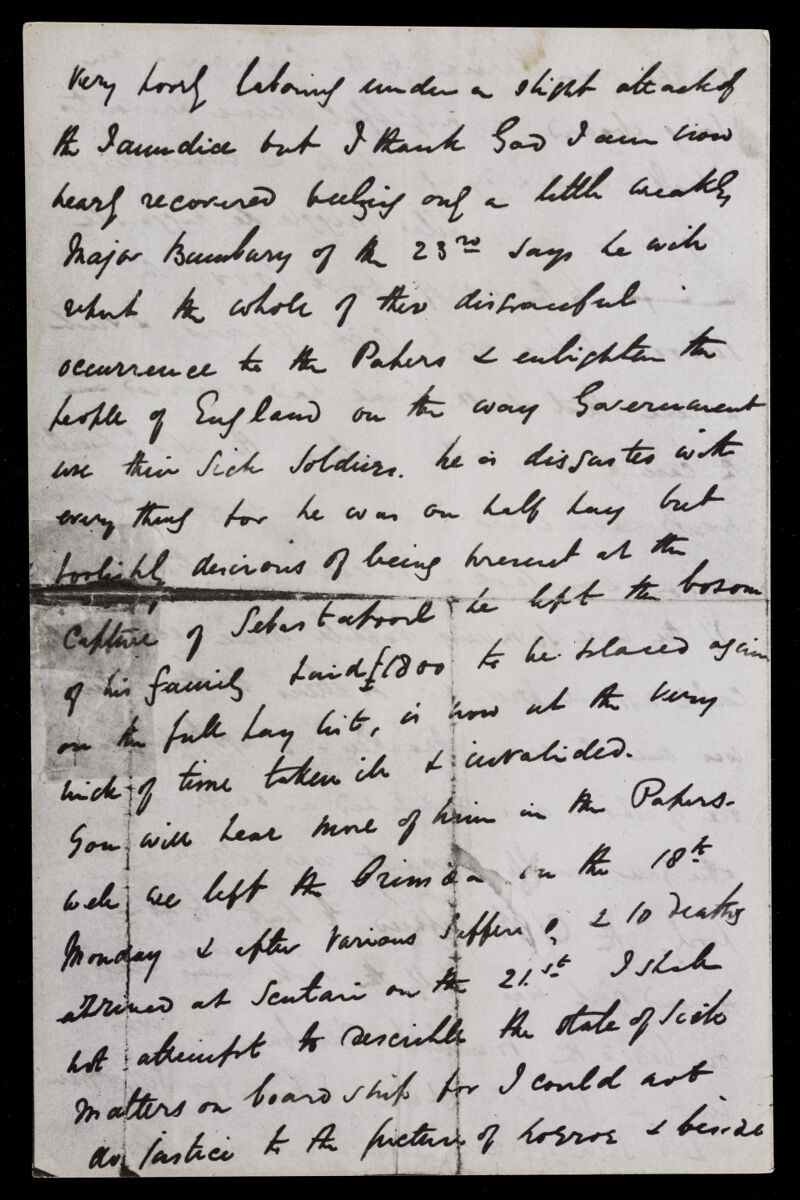 very poorly laboring under a slight attack of
the Jaundice but I thank God I am now
nearly recovered feeling only a little weakly
Major Bunbury of the 23rd says he will
report the whole of this disgraceful
occurrence to the Papers & enlighten the
people of England on the way Government
use their Sick Soldiers. he is disgusted with
every thing for he was on half pay but
foolishly desirous of being present at the
Capture of Sebastapool he left the bosom
of his family paid £1800 to be placed again
on the full pay list, is now at the very
nick of time taken ill & invalided.
You will hear more of him in the Papers.
well we left the Crimea on the 18th
Monday & after various & 10 deaths
arrived at Scutari on the 21st I shall
not attempt to describe the state of Sick
Matters on board ship for I could not
do justice to the picture of horror & beside